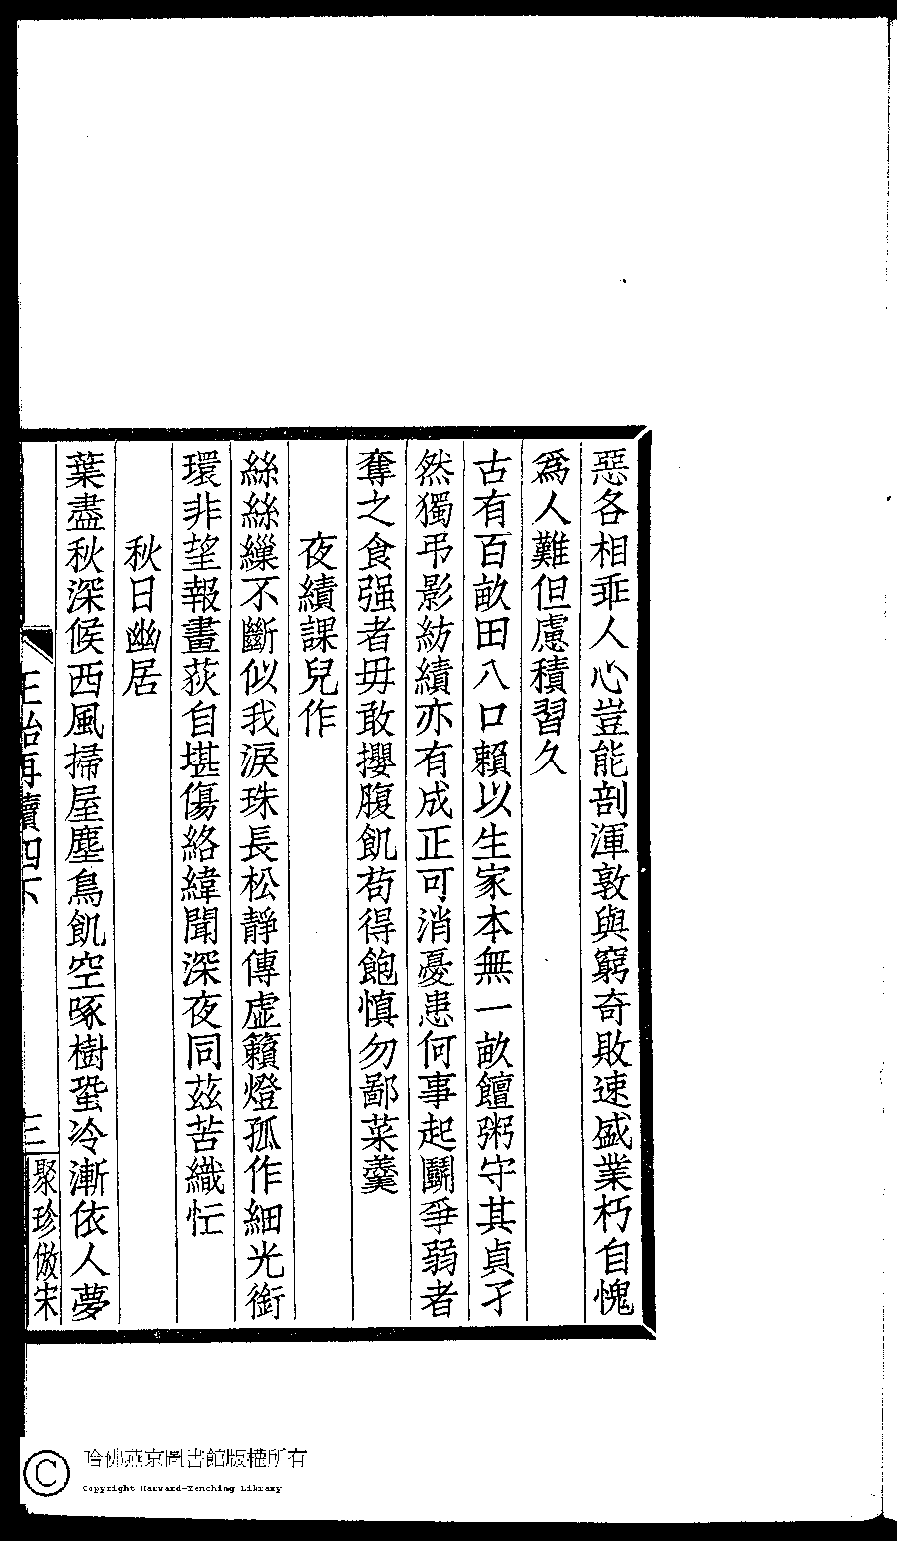 惡各相乖人心豈能剖渾敦與窮奇敗速盛業朽自愧
爲人難但慮積習久
古有百畝田八口賴以生家本無一畝饘粥守其貞孑
然獨弔影紡績亦有成正可消憂患何事起鬬爭弱者
奪之食强者毋敢攖腹飢苟得飽慎勿鄙菜羹
夜績課兒作
絲絲繅不斷似我淚珠長松靜傳虛籟燈孤作細光銜
環非望報畫荻自堪傷絡緯聞深夜同茲苦織忙
秋日幽居
葉盡秋深候西風掃屋塵鳥飢空啄樹蛩冷漸依人夢
三
聚珍倣宋
哈佛燕京圖書館版權所有
Copyright Harvard-Yenching Library